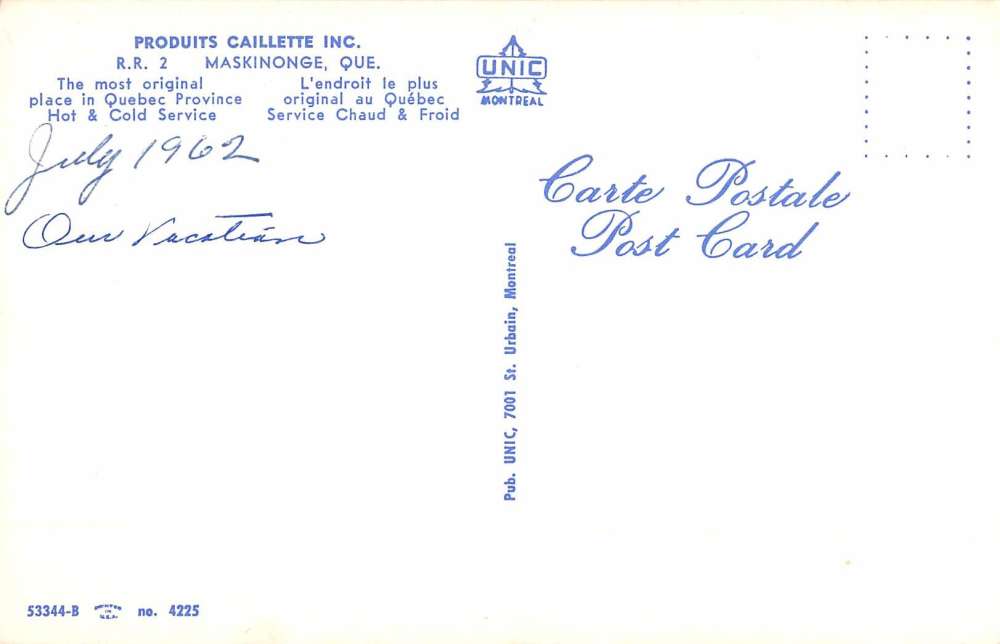 PRODUITS CAILLETTE INC.
R.R. 2 MASKINONGE, QUE.
The most original
place in Quebec Province
Hot & Cold Service
L'endroit le plus
original au Québec
Service Chaud & Froid
July 1962
Our Vacation
UNIC
MONTREAL
Carte Postale
Post Card
Pub. UNIC, 7001 St. Urbain, Montreal
53344-B PRINTED IN U.S.A. no. 4225